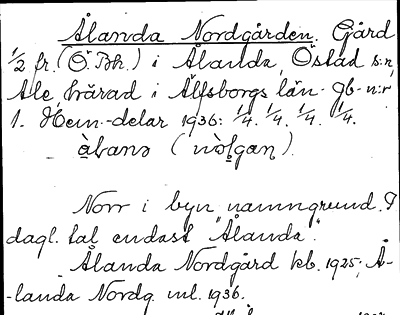 Ålanda Nordgården. Gård
1/2 fr. (Ö. Bh.) i Ålanda, Östad s:n,
Ale härad i Älfsborgs län. Gb-n:r
1. Hem.-delar 1936: 1/4. 1/4. 1/4. 1/4.
Norr i byn namngrund. I
dagl. tal endast "Ålanda".
Ålanda Nordgård kb. 1925; Å-
-landa Nordg. ml. 1936.